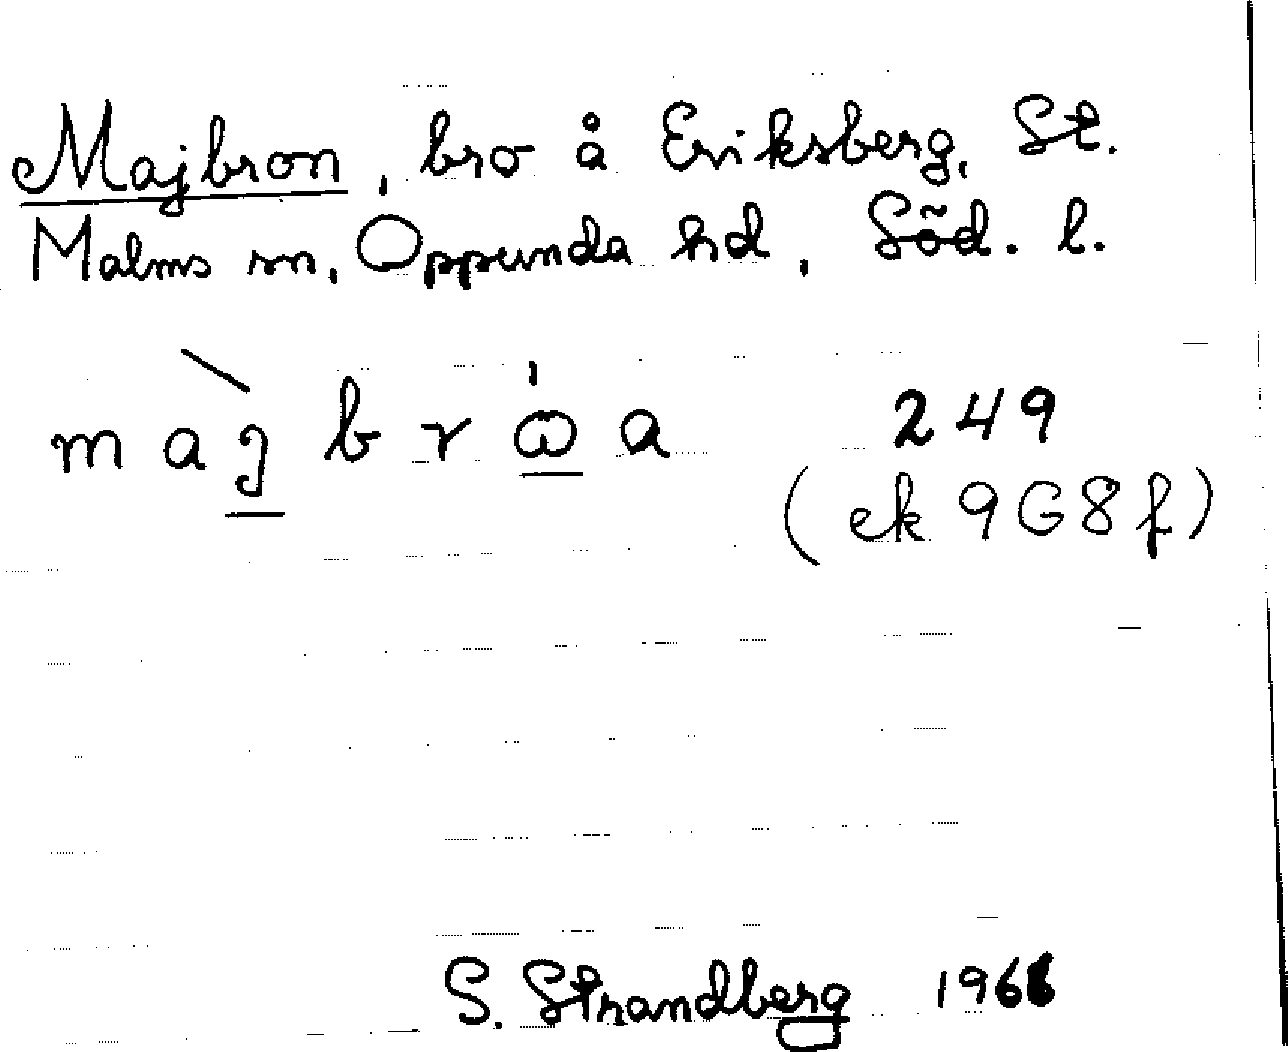 Majbron, bro å Eriksberg, St.
Malms sn, Oppunda hd, Söd. l.
màj brω̍a 249
(ek 9G8f)
S. Strandberg 1966